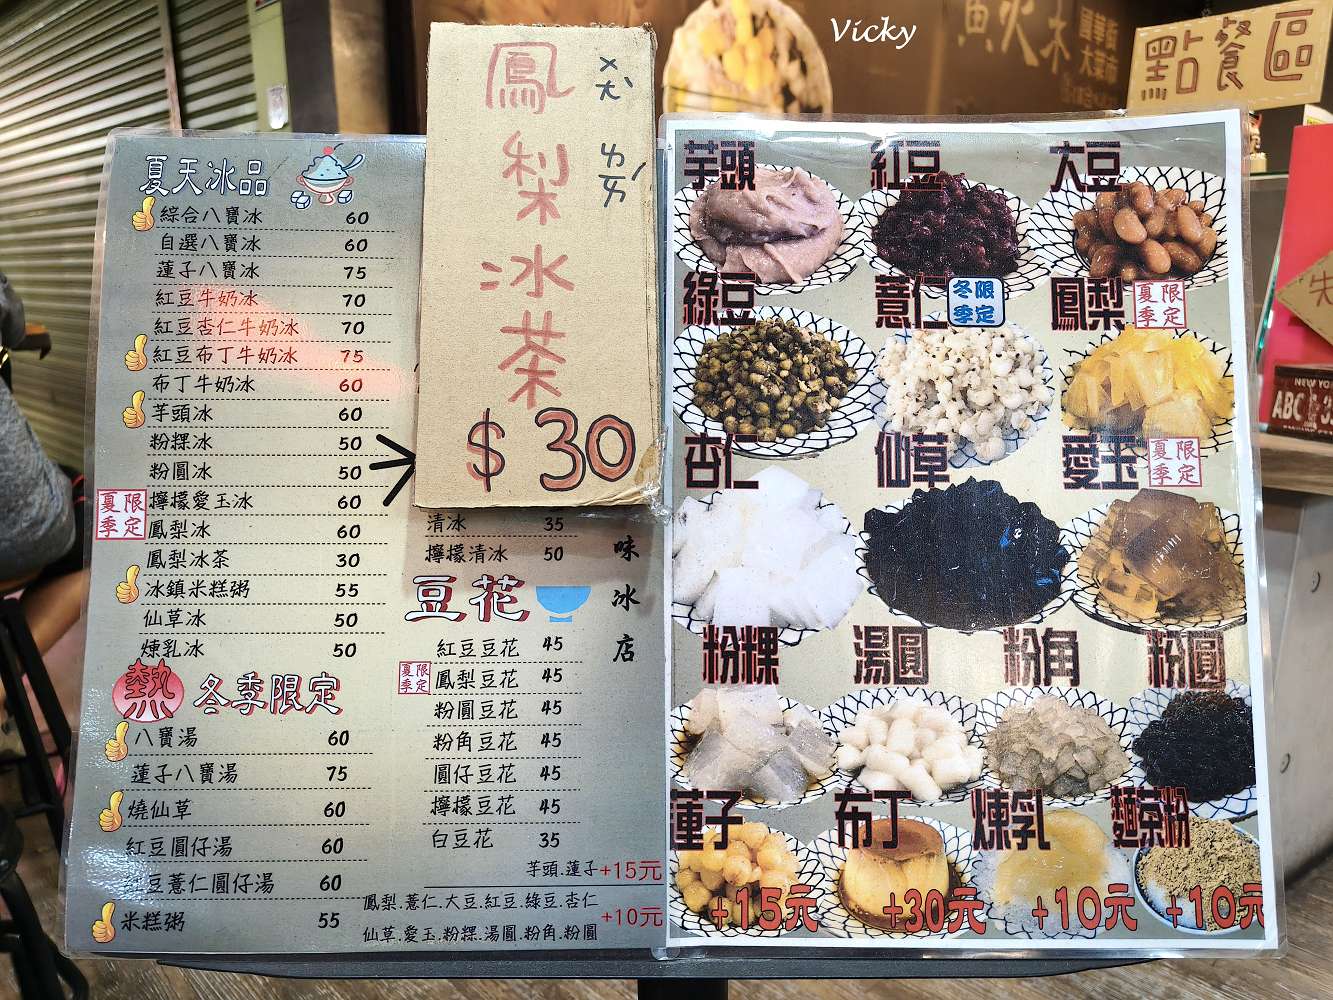 Vicky
點餐區
夏天冰品
綜合八寶冰 60
自選八寶冰 60
蓮子八寶冰 75
紅豆牛奶冰 70
紅豆杏仁牛奶冰 70
紅豆布丁牛奶冰 75
布丁牛奶冰 60
芋頭冰 60
粉粿冰 50
粉圓冰 50
夏季限定
檸檬愛玉冰 60
鳳梨冰 60
鳳梨冰茶 30
冰鎮米糕粥 55
仙草冰 50
煉乳冰 50
熱 冬季限定
八寶湯 60
蓮子八寶湯 75
燒仙草 60
紅豆圓仔湯 60
豆薏仁圓仔湯 60
米糕粥 55
鳳梨冰茶
ㄆㄤˋ
$30
清冰 35
檸檬清冰 50
味冰店
豆花
紅豆豆花 45
夏季限定
鳳梨豆花 45
粉圓豆花 45
粉角豆花 45
圓仔豆花 45
檸檬豆花 45
白豆花 35
芋頭.蓮子+15元
鳳梨.薏仁.大豆.紅豆.綠豆.杏仁
仙草.愛玉.粉粿.湯圓.粉角.粉圓
+10元
芋頭 紅豆 大豆
綠豆 薏仁 冬季限定 鳳梨 夏季限定
杏仁 仙草 愛玉 夏季限定
粉粿 湯圓 粉角 粉圓
蓮子 布丁 煉乳 麵茶粉
+15元 +30元 +10元 +10元
NEW YO
ABC